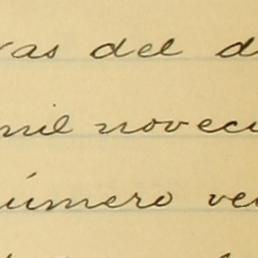 ras del d
mil novecie
número ve